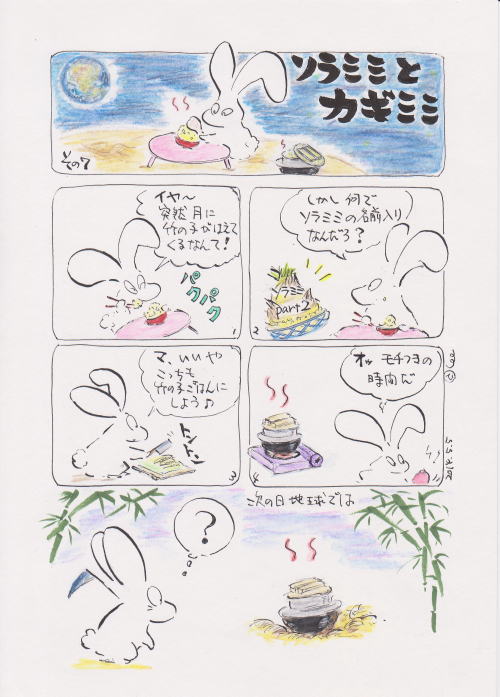 ソラミミと
カギミミ
その7
イヤ～
突然 月に
竹の子がはえて
くるなんて!
パクパク
1
しかし 何で
ソラミミの名前入り
なんだろ?
ソラミミ
part2
2
マ、いいや
こっちも
竹の子ごはんに
しよう♪
トントン
3
オッ モチつきの
時間だ
4
次の日 地球では
?